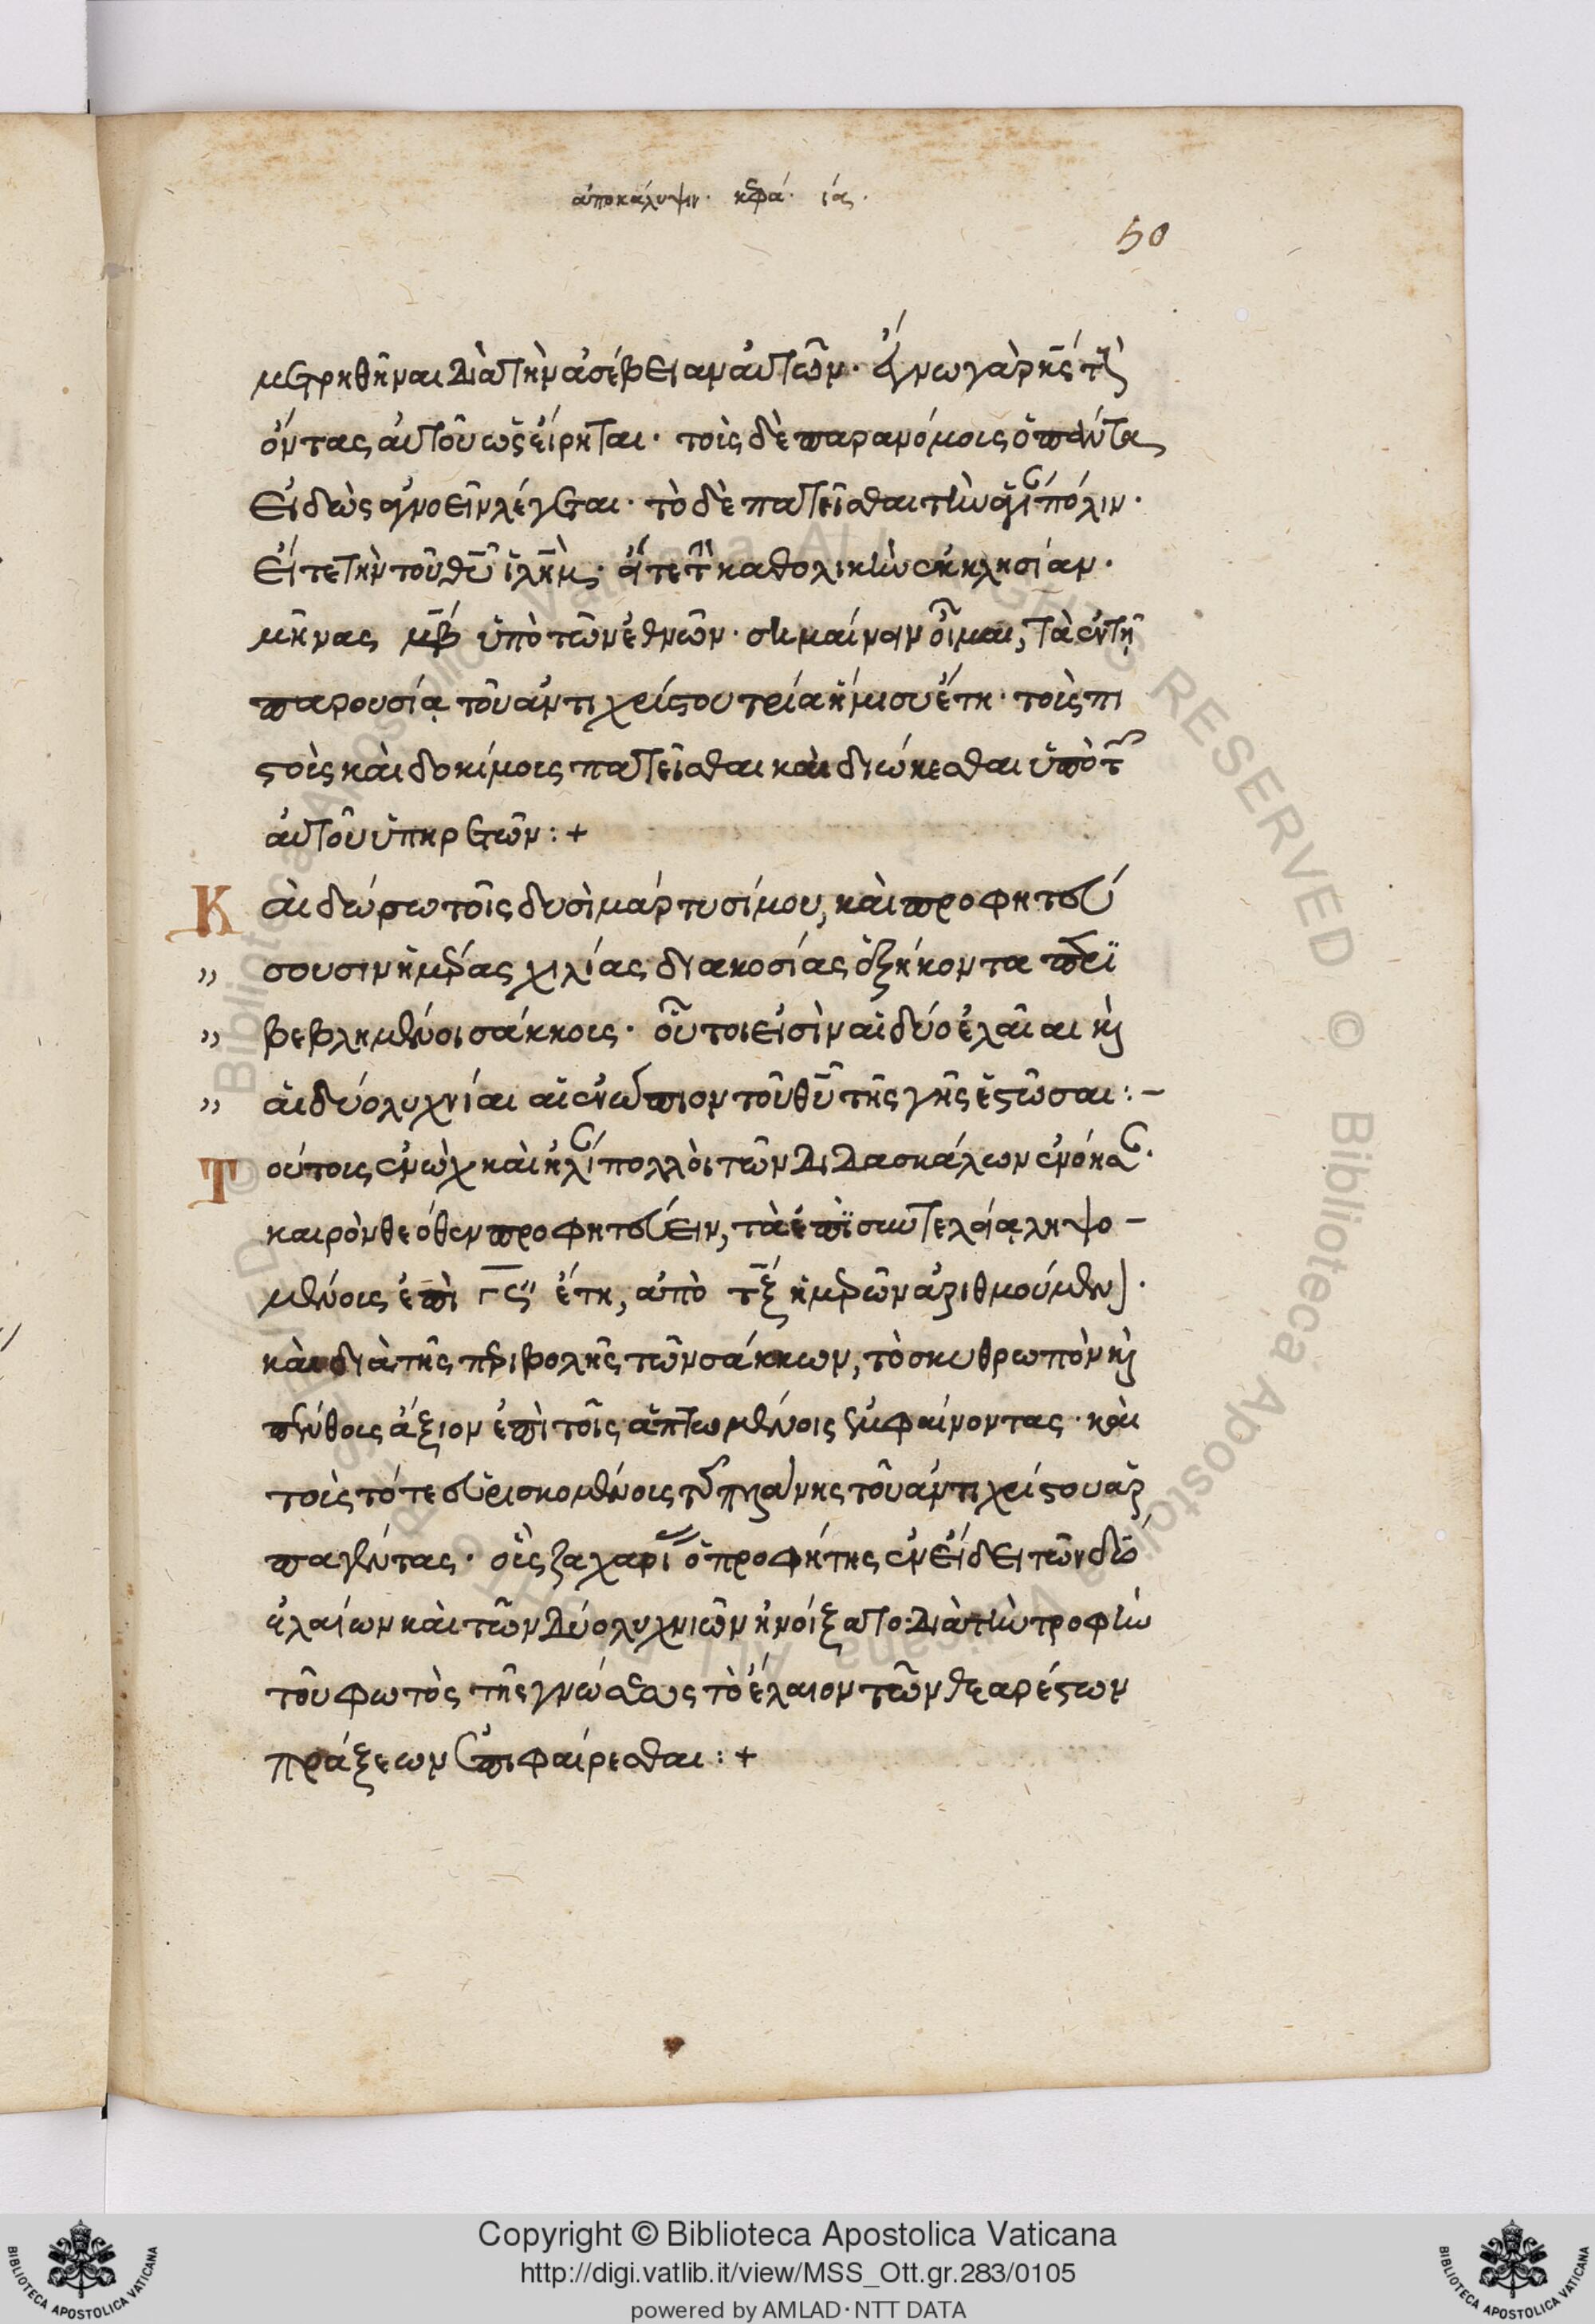 ἀποκάλυψιν· κεφά· ια´ς·
50
μετρηθῆναι διὰ τὴν ἀσέβειαν αὐτῶν· ἔγνω γὰρ κ̅ς̅ τοὺς
ὄντας αὐτοῦ ὡς εἴρηται· τοῖς δὲ παρανόμοις ὁ πάντα
εἰδὼς ἀγνοεῖν λέγεται· τὸ δὲ πατεῖσθαι τὴν ἁγίαν πόλιν·
εἴτε τὴν τοῦ θ̅υ̅ ἰλ̅η̅μ̅· εἴτε τὴν καθολικὴν ἐκκλησίαν·
μῆνας μ̅β̅ ὑπὸ τῶν ἐθνῶν· σημαίνειν οἶμαι, τὰ ἐν τῇ
παρουσίᾳ τοῦ ἀντιχρίστου τρία ἥμισυ ἔτη· τοὺς πι
στοὺς καὶ δοκίμους πατεῖσθαι καὶ διώκεσθαι ὑπὸ τῶν
αὐτοῦ ὑπηρετῶν:+
Καὶ δώσω τοῖς δυσὶ μάρτυσί μου, καὶ προφητεύ
σουσιν ἡμέρας χιλίας διακοσίας ἑξήκοντα περι
βεβλημένοι σάκκους· οὗτοι εἰσὶν αἱ δύο ἐλαῖαι καὶ
αἱ δύο λυχνίαι αἱ ἐνώπιον τοῦ θ̅υ̅ τῆς γῆς ἑστῶσαι:-
Τούτους ἐνὼχ καὶ ἠλίαν πολλοὶ τῶν διδασκάλων ἐνόησαν·
καιρὸν θεόθεν προφητεύειν, τὰ ἐπὶ συντελείᾳ ληψο-
μένους ἐπὶ γ̅ς̅ʺ ἔτη, ἀπὸ τ̅ξ̅ ἡμερῶν ἀριθμούμενα·
καὶ διὰ τῆς περιβολῆς τῶν σάκκων, τὸ σκυθρωπὸν καὶ
πένθους ἄξιον ἐπὶ τοῖς ἀπατωμένοις ἐμφαίνοντας· καὶ
τοὺς τότε εὑρισκομένους τῆς πλάνης τοῦ ἀντιχρίστου ἀπ
παγέντας· οὓς ζαχαρίας ὁ προφήτης ἐν εἴδει τῶν δύο
ἐλαίων καὶ τῶν δύο λυχνιῶν ᾐνίξατο· διὰ τὴν τροφὴν
τοῦ φωτὸς τῆς γνώσεως τὸ ἔλαιον τῶν θεαρέστων
πράξεων ἐπιφαίρεσθαι:+
© Biblioteca Apostolica Vaticana ALL RIGHTS RESERVED
Copyright © Biblioteca Apostolica Vaticana
http://digi.vatlib.it/view/MSS_Ott.gr.283/0105
powered by AMLAD·NTT DATA
BIBLIOTECA APOSTOLICA VATICANA
BIBLIOTECA APOSTOLICA VATICANA